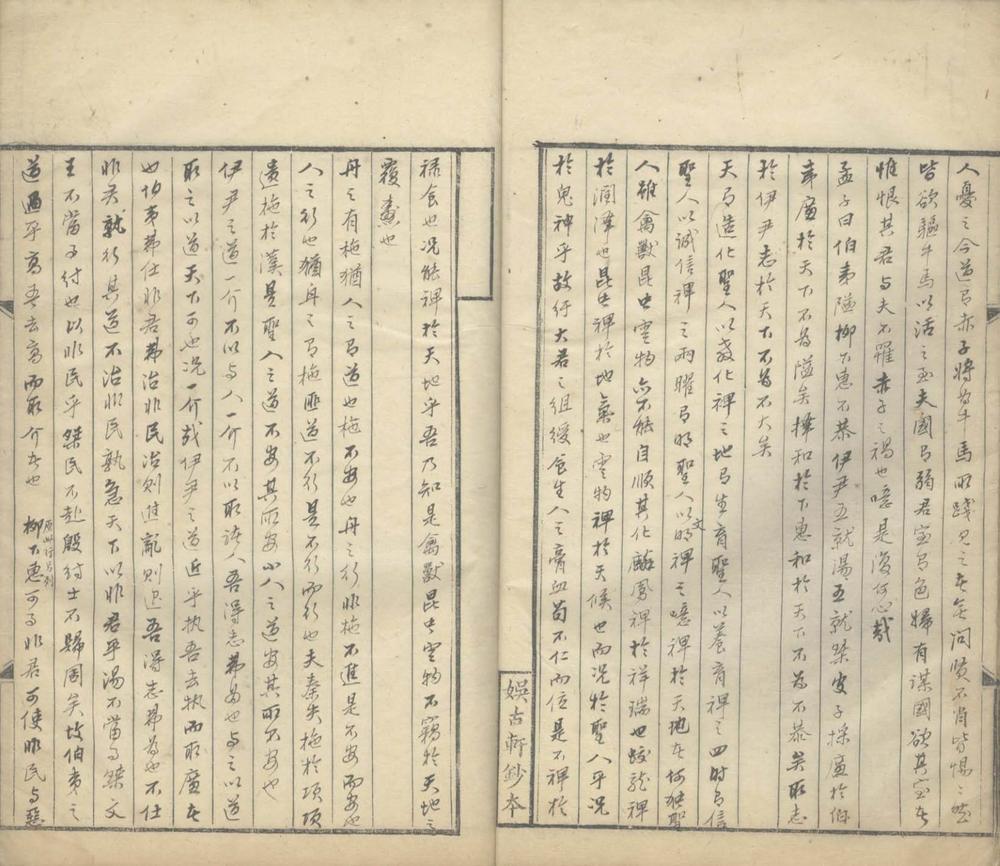 人憂之今道有赤子將為牛馬所踐見之者無問賢不肖皆惕惕然
皆欲驅牛馬以活之至夫國有弱君室有色婦有謀國欲其室者
惟恨其君与夫不罹赤子之禍也噫是復何心哉
孟子曰伯夷隘柳下惠不恭伊尹五就湯五就桀皮子採廉於伯
夷廉於天下不為隘矣擇和於下惠和於天下不為不恭矣取志
於伊尹志於天下不為不大矣
天有造化聖人以教化裨之地有生育聖人以養育裨之四時有信
聖人以誠信裨之兩曜有明聖人以文明裨之噫裨於天地者何獨聖
人雖禽獸昆虫雲物亦不能自順其化麟鳳裨於祥瑞也蛟龍裨
於潤澤也昆虫裨於地氣也雲物裨於天候也而況於聖人乎況
於鬼神乎故紆大君之組綬食生人之膏血苟不仁而位是不裨於
娛古軒鈔本
祿食也況能裨於天地乎吾乃知是禽獸昆虫雲物不竊於天地之
覆燾也
舟之有拖猶人之有道也拖不安也舟之行非拖不進是不安而安也
人之行也猶舟之有拖匪道不行是不行而行也夫秦失拖於項項
遺拖於漢是聖人之道不安其所安小人之道安其所不安也
伊尹之道一介不以与人一介不以取諸人吾得志弗為也与之以道
取之以道天下可也況一介哉伊尹之道近乎執吾去執而取廣者
也伯夷弗仕非君弗治非民治則進亂則退吾得志弗為也不仕
非君孰行其道不治非民孰急天下以非君乎湯不當有桀文
王不當有紂也以非民乎桀民不赴殷紂士不歸周矣故伯夷之
道過乎高吾去高而取介者也 原此行另列 柳下惠可事非君可使非民与惡